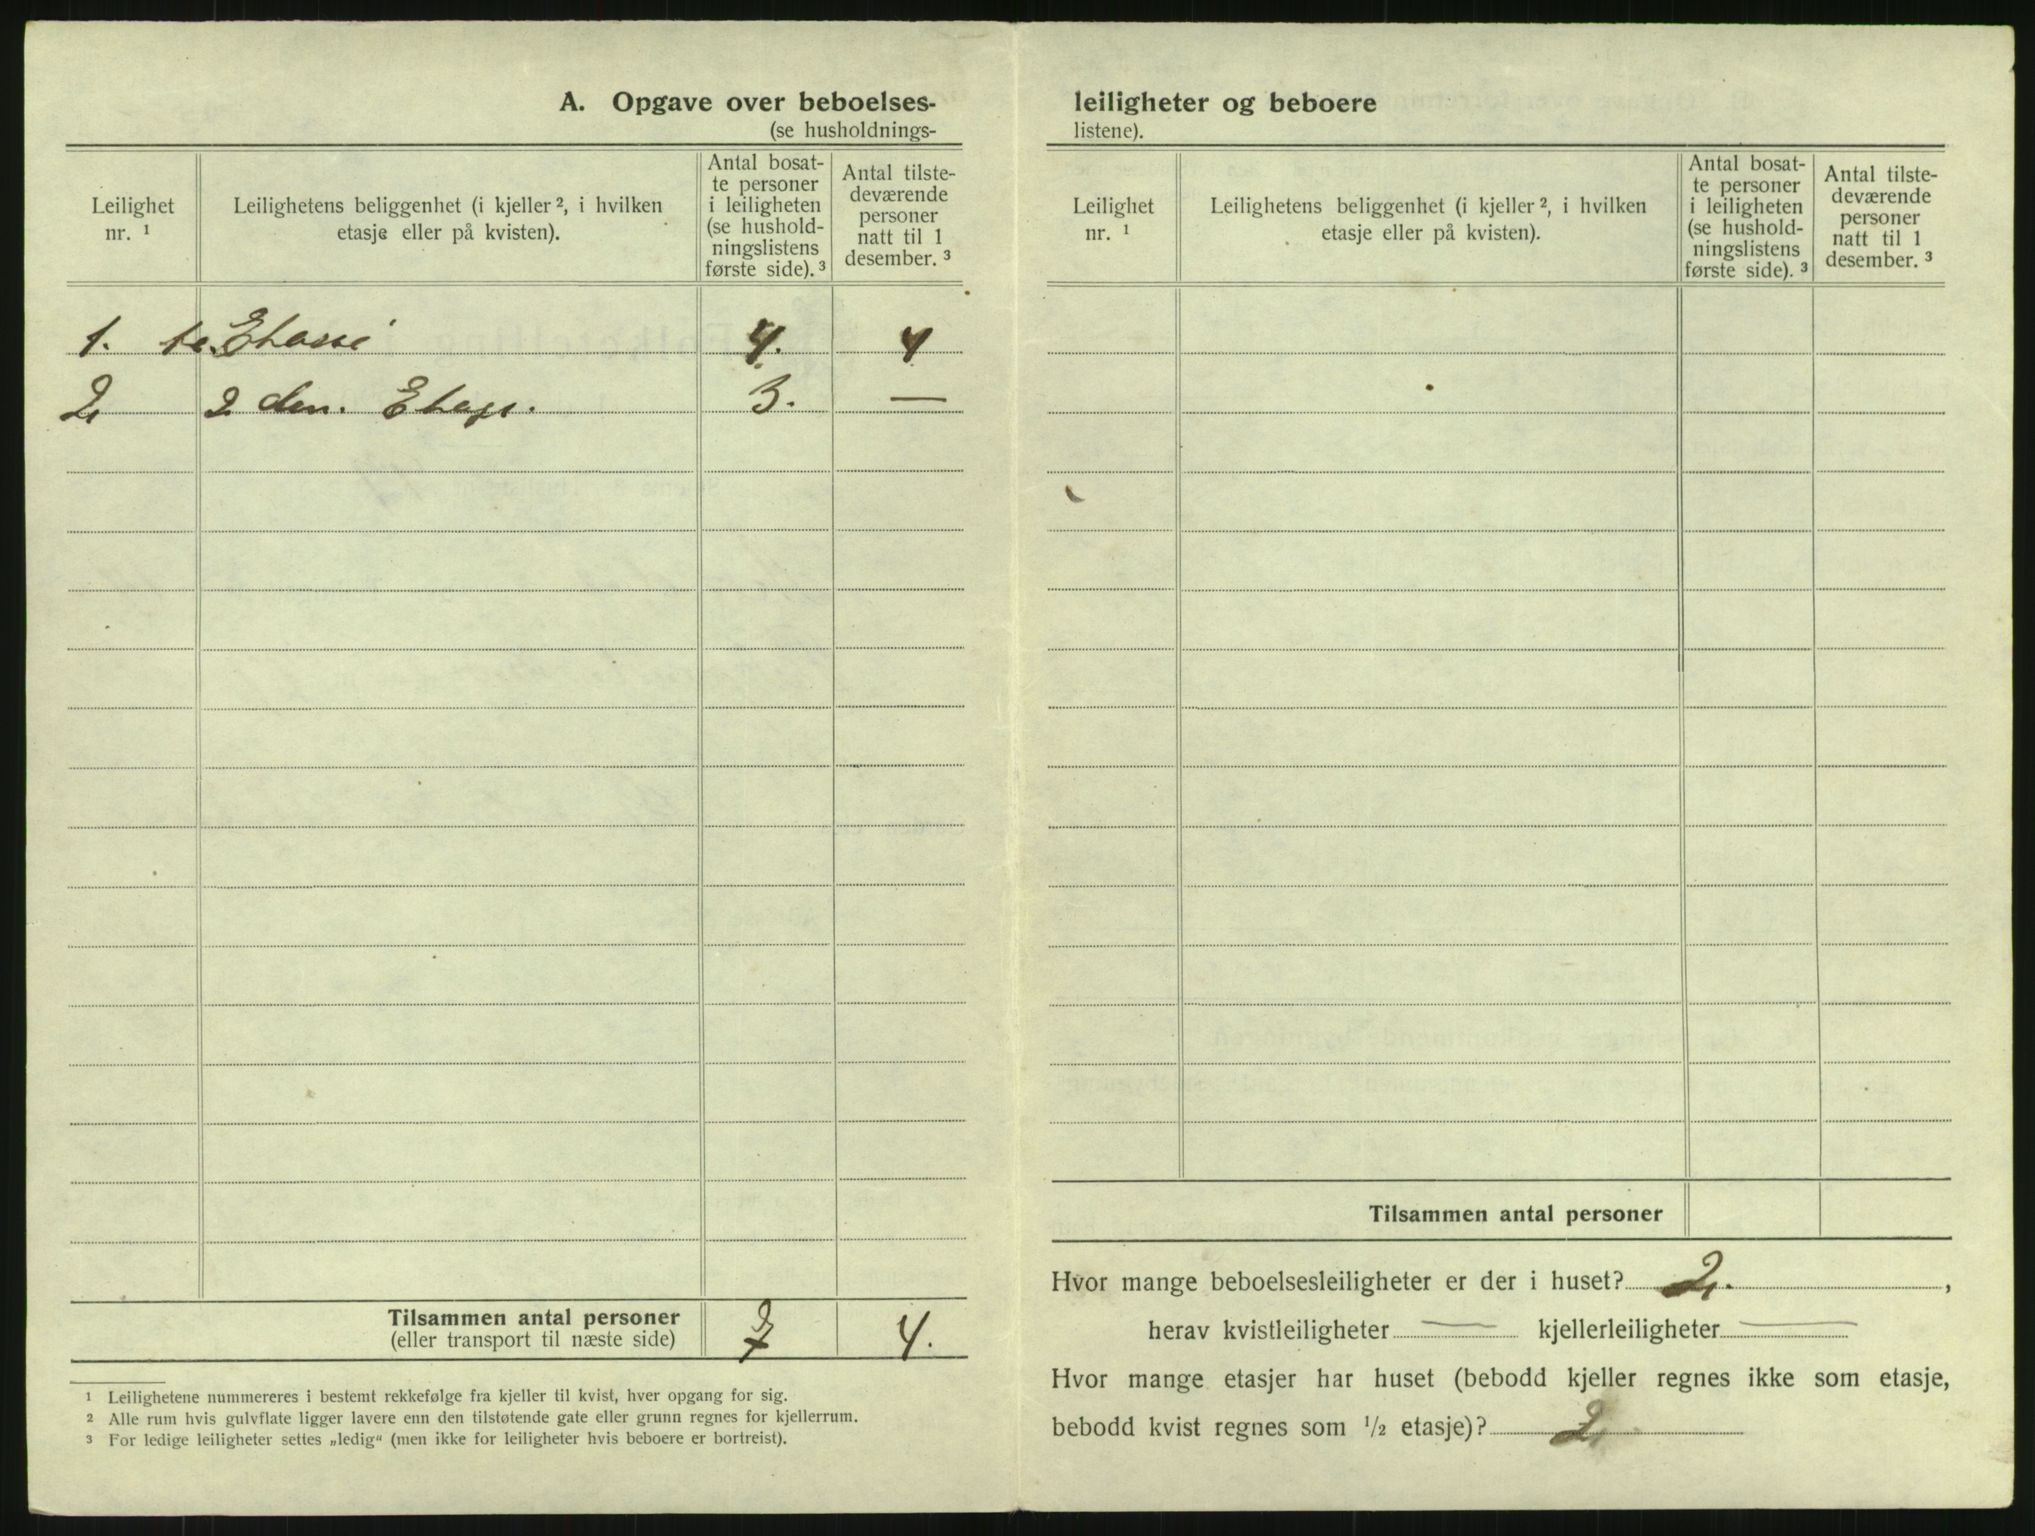 A. Opgave over beboelses-
(se husholdnings-
Leilighet nr. ¹
Leilighetens beliggenhet (i kjeller ², i hvilken etasje eller på kvisten).
Antal bosat-te personer i leiligheten (se hushold-ningslistens første side). ³
Antal tilste-deværende personer natt til 1 desember. ³
1. 1e. Etasse 4. 4
2. 2 den. Etage. 3. —
Tilsammen antal personer 7 4.
(eller transport til næste side)
¹ Leilighetene nummereres i bestemt rekkefølge fra kjeller til kvist, hver opgang for sig.
² Alle rum hvis gulvflate ligger lavere enn den tilstøtende gate eller grunn regnes for kjellerrum.
³ For ledige leiligheter settes „ledig“ (men ikke for leiligheter hvis beboere er bortreist).
leiligheter og beboere
listene).
Leilighet nr. ¹
Leilighetens beliggenhet (i kjeller ², i hvilken etasje eller på kvisten).
Antal bosat-te personer i leiligheten (se hushold-ningslistens første side). ³
Antal tilste-deværende personer natt til 1 desember. ³
Tilsammen antal personer
Hvor mange beboelsesleiligheter er der i huset? 2.,
herav kvistleiligheter — kjellerleiligheter —
Hvor mange etasjer har huset (bebodd kjeller regnes ikke som etasje,
bebodd kvist regnes som ½ etasje)? 2.